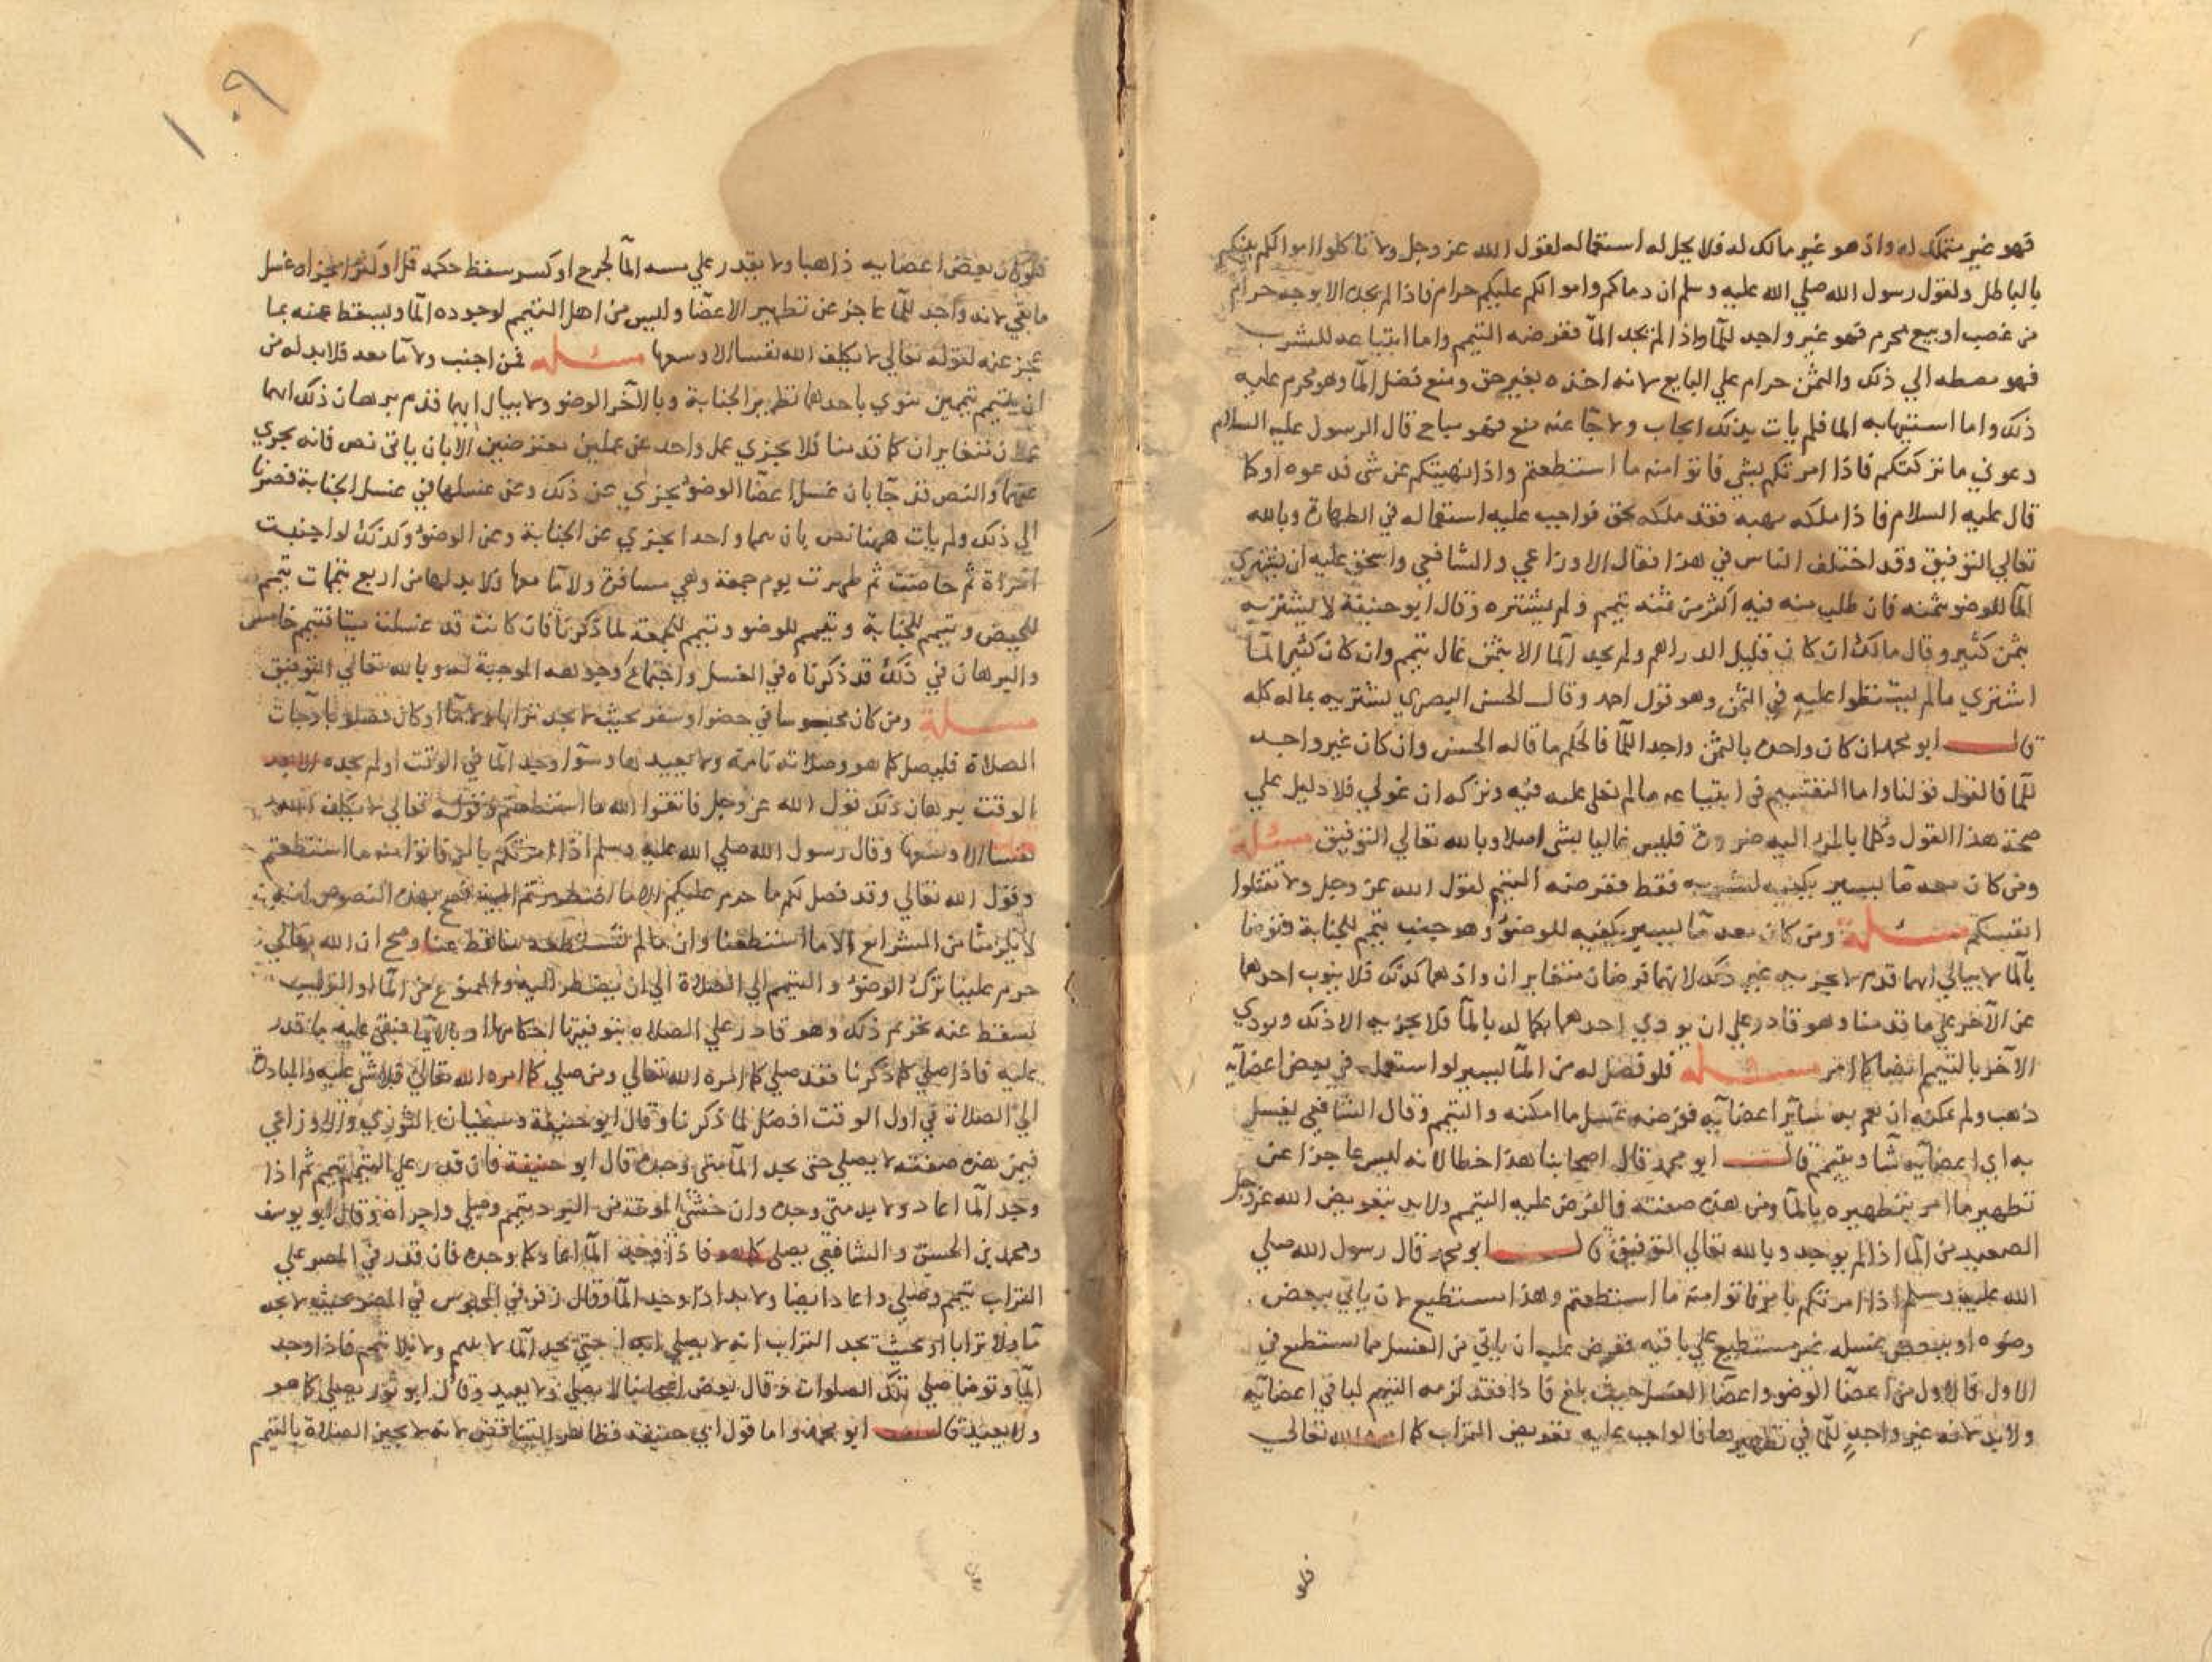 فهو غير متملك له واذ هو غير مالك له فلا يحل له استعماله لقول الله عز وجل ولا تاكلوا اموالكم بينكم
بالباطل ولقول رسول الله صلي الله عليه وسلم ان دماكم واموالكم عليكم حرام فاذا لم يجده الا بوجه حرام
من غصب او بيع محرم فهو غير واجد للما واذا لم يجد الما ففرضه التيمم واما ابتياعه للشرب
فهو مضطر الي ذلك والثمن حرام علي البايع لانه اخذه بغير حق ومنع فضل الما وهو محرم عليه
ذلك واما استيهابه الما فلم يات بذلك ايجاب ولا جا عنه منع فهو مباح قال الرسول عليه السلام
دعوني ما تركتكم فاذا امرتكم بشي فاتوا منه ما استطعتم واذا نهيتكم عن شي فدعوه او كما
قال عليه السلام فاذا ملكه بهبه فقد ملكه بحق فواجب عليه استعماله في الطهارة وبالله
تعالي التوفيق وقد اختلف الناس في هذا فقال الاوزاعي والشافعي واسحق عليه ان يشتري
الما للوضو بثمنه فان طلب منه فيه اكثر من ثمنه تيمم ولم يشتره وقال ابو حنيفة لا يشتريه
بثمن كثير وقال مالك ان كان قليل الدراهم ولم يجد الما الا بثمن غال تيمم وان كان كثير المال
اشتري ما لم يشتطوا عليه في الثمن وهو قول احمد وقال الحسن البصري يشتريه بماله كله
قال ابو محمد ان كان واجده بالثمن واجدا للما فالحكم ما قاله الحسن وان كان غير واجد
للما فالقول قولنا واما التقسيم في ابتياعه ما لم يغل عليه فيه وتركه ان غولي فلا دليل علي
صحة هذا القول وكلما بالمرء اليه ضرورة فليس غاليا بشي اصلا وبالله تعالي التوفيق مسئلة
ومن كان معه ما يسير يكفيه لشربه فقط ففرضه التيمم لقول الله عز وجل ولا تقتلوا
انفسكم مسئلة ومن كان معه ما يسير يكفيه للوضو وهو جنب تيمم للجنابة وتوضا
بالما لا يبالي ايهما قدم لا يجزيه غير ذلك لانهما فرضان متغايران واذ هما كذلك فلا ينوب احدهما
عن الآخر علي ما قدمنا وهو قادر علي ان يودي احدهما بكماله بالما فلا يجزيه الا ذلك ويودي
الآخر بالتيمم ايضا كما امر مسئلة فلو فضل له من الما يسير لو استعمله في بعض اعضايه
ذهب ولم يمكنه ان يعم به ساير اعضايه ففرضه غسل ما امكنه والتيمم وقال الشافعي يغسل
به اي اعضايه شا ويتيمم قال ابو محمد قال اصحابنا هذا خطا لانه ليس عاجزا عن
تطهير ما امر بتطهيره بالما ومن هذه صفته فالفرض عليه التيمم ولابد بتعويض الله عز وجل
الصعيد من الما اذا لم يوجد وبالله تعالي التوفيق قال ابو محمد قال رسول الله صلي
الله عليه وسلم اذا امرتكم بامر فاتوا منه ما استطعتم وهذا مستطيع لان ياتي ببعض
وضوه او ببعض غسله غير مستطيع علي باقيه ففرض عليه ان ياتي من الغسل مما يستطع في
الاول فالاول من اعضا الوضو واعضا الغسل حيث بلغ فاذا فقد لزمه التيمم لباقي اعضايه
ولابد لانه غير واجد للما في تطهيرها فالواجب عليه تعويض التراب كما امره الله تعالي
فلو
فلو كان بعض اعضايه ذاهبا ولا يقدر علي مسه الما لجرح او كسر سقط حكمه قل او كثر واجزاه غسل
ما بقي لانه واجد للما عاجز عن تطهير الاعضا وليس من اهل التيمم لوجوده الما وليسقط عنه بما
عجز عنه لقوله تعالي لا يكلف الله نفسا الا وسعها مسئلة فمن اجنب ولا ما معه فلابد له من
ان يتيمم تيممين ينوي باحدهما تطهير الجنابة وبالآخر الوضو ولا يبال ايهما قدم برهان ذلك انهما
عملان متغايران كما قدمنا فلا يجزي عمل واحد عن عملين مفترضين الا بان ياتي نص فانه يجزي
عنهما والنص قد جا بان غسل اعضا الوضو يجزي عن ذلك وعن غسلها في غسل الجنابة فصرنا
الي ذلك ولم يات ههنا نص بان تيمما واحدا يجزي عن الجنابة وعن الوضو وكذلك لو اجنبت
امراة ثم حاضت ثم طهرت يوم جمعة وهي مسافرة ولا ما معها فلابد لها من اربع تيممات تيمم
للحيض وتيمم للجنابة وتيمم للوضو وتيمم للجمعة لما ذكرنا فان كانت قد غسلت ميتا فتيمم خامس
والبرهان في ذلك قد ذكرناه في الغسل واجتماع وجوهه الموجبة له وبالله تعالي التوفيق
مسئلة ومن كان محبوسا في حضر او سفر بحيث لا يجد ترابا ولا ما او كان مصلوبا وجات
الصلاة فليصل كما هو وصلاته تامة ولا يعيدها وسوا وجد الما في الوقت او لم يجده الا بعد
الوقت برهان ذلك قول الله عز وجل فاتقوا الله ما استطعتم وقوله تعالي لا يكلف الله
نفسا الا وسعها وقال رسول الله صلي الله عليه وسلم اذا امرتكم بامر فاتوا منه ما استطعتم
وقول الله تعالي وقد فصل لكم ما حرم عليكم الا ما اضطررتم اليه فصح بهذه النصوص انه
لا يلزمنا من الشرايع الا ما استطعنا وان ما لم نستطعه ساقط عنا وصح ان الله تعالي
حرم علينا ترك الوضو والتيمم الي الصلاة الي ان يضطر اليه والممنوع من الما او التراب
يسقط عنه تحريم ذلك وهو قادر علي الصلاه بتوفيتها احكامها وبالايمان فبقي عليه ما قدر
عليه فاذا صلي كما ذكرنا فقد صلي كما امره الله تعالي ومن صلي كما امره الله تعالي فلا شي عليه والمبادرة
الي الصلاة في اول الوقت افضل لما ذكرنا وقال ابو حنيفة وسفيان الثوري والاوزاعي
فيمن هذه صفته لا يصلي حتى يجد الما متي وجده قال ابو حنيفة فان قدر علي التيمم تيمم ثم اذا
وجد الما اعاد ولابد متي وجده وان خشي الموت من البرد تيمم وصلي واجزاه وقال ابو يوسف
ومحمد بن الحسن والشافعي يصلي كما هو فاذا وجد الما اعاد كما وجده فان قدر في المصر علي
التراب تيمم وصلي واعاد ايضا ولابد اذا وجد الما وقال زفر في المحبوس في المصر بحيث لا يجد
ما ولا ترابا او بحيث يجد التراب انه لا يصلي ابدا حتي يجد الما لا يتيمم ولا بلا تيمم فاذا وجد
الما وتوضا صلي تلك الصلوات وقال بعض اصحابنا لا يصلي ولا يعيد وقال ابو ثور يصلي كما هو
ولا يعيد قال ابو محمد واما قول ابي حنيفة فظاهر التناقض لانه لا يجيز الصلاة بالتيمم
١٠٩